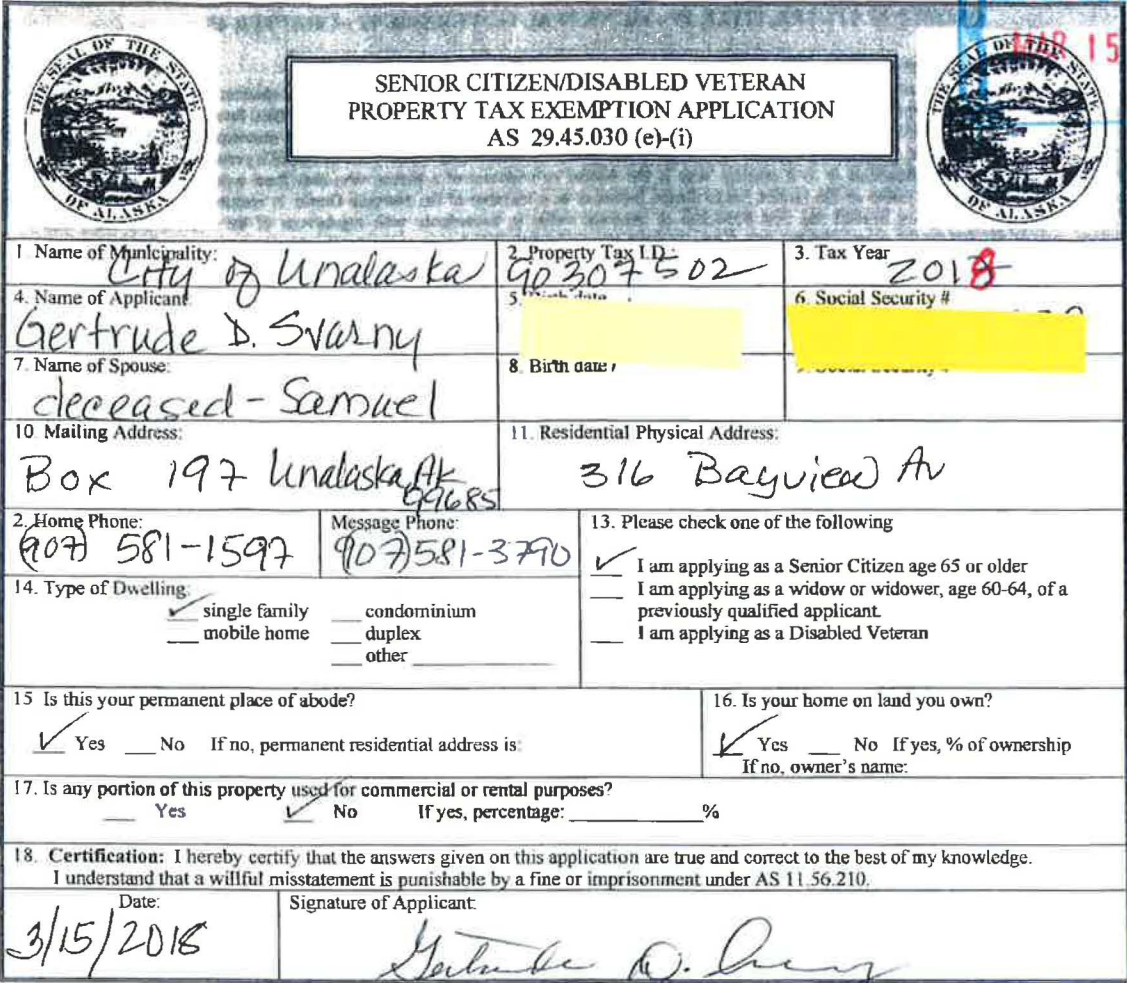 MAR 15
THE SEAL OF THE STATE OF ALASKA
THE SEAL OF THE STATE OF ALASKA
SENIOR CITIZEN/DISABLED VETERAN
PROPERTY TAX EXEMPTION APPLICATION
AS 29.45.030 (e)-(i)
1 Name of Municipality: City of Unalaska
2. Property Tax I.D.: 90307502
3. Tax Year 2018
4. Name of Applicant: Gertrude D. Svarny
5. Birth date
6. Social Security #
7. Name of Spouse: deceased - Samuel
8. Birth date
9. Social Security #
10. Mailing Address:
Box 197 Unalaska, Ak
99685
11. Residential Physical Address:
316 Bayview Av
2. Home Phone: (907) 581-1597
Message Phone: (907) 581-3790
13. Please check one of the following
✓ I am applying as a Senior Citizen age 65 or older
___ I am applying as a widow or widower, age 60-64, of a
previously qualified applicant.
___ I am applying as a Disabled Veteran
14. Type of Dwelling:
✓ single family ___ condominium
___ mobile home ___ duplex
___ other ___
15 Is this your permanent place of abode?
✓ Yes ___ No If no, permanent residential address is:
16. Is your home on land you own?
✓ Yes ___ No If yes, % of ownership
If no, owner's name:
17. Is any portion of this property used for commercial or rental purposes?
___ Yes ✓ No If yes, percentage: ___%
18. Certification: I hereby certify that the answers given on this application are true and correct to the best of my knowledge.
I understand that a willful misstatement is punishable by a fine or imprisonment under AS 11.56.210.
Date: 3/15/2018
Signature of Applicant:
Gertrude D. Svarny